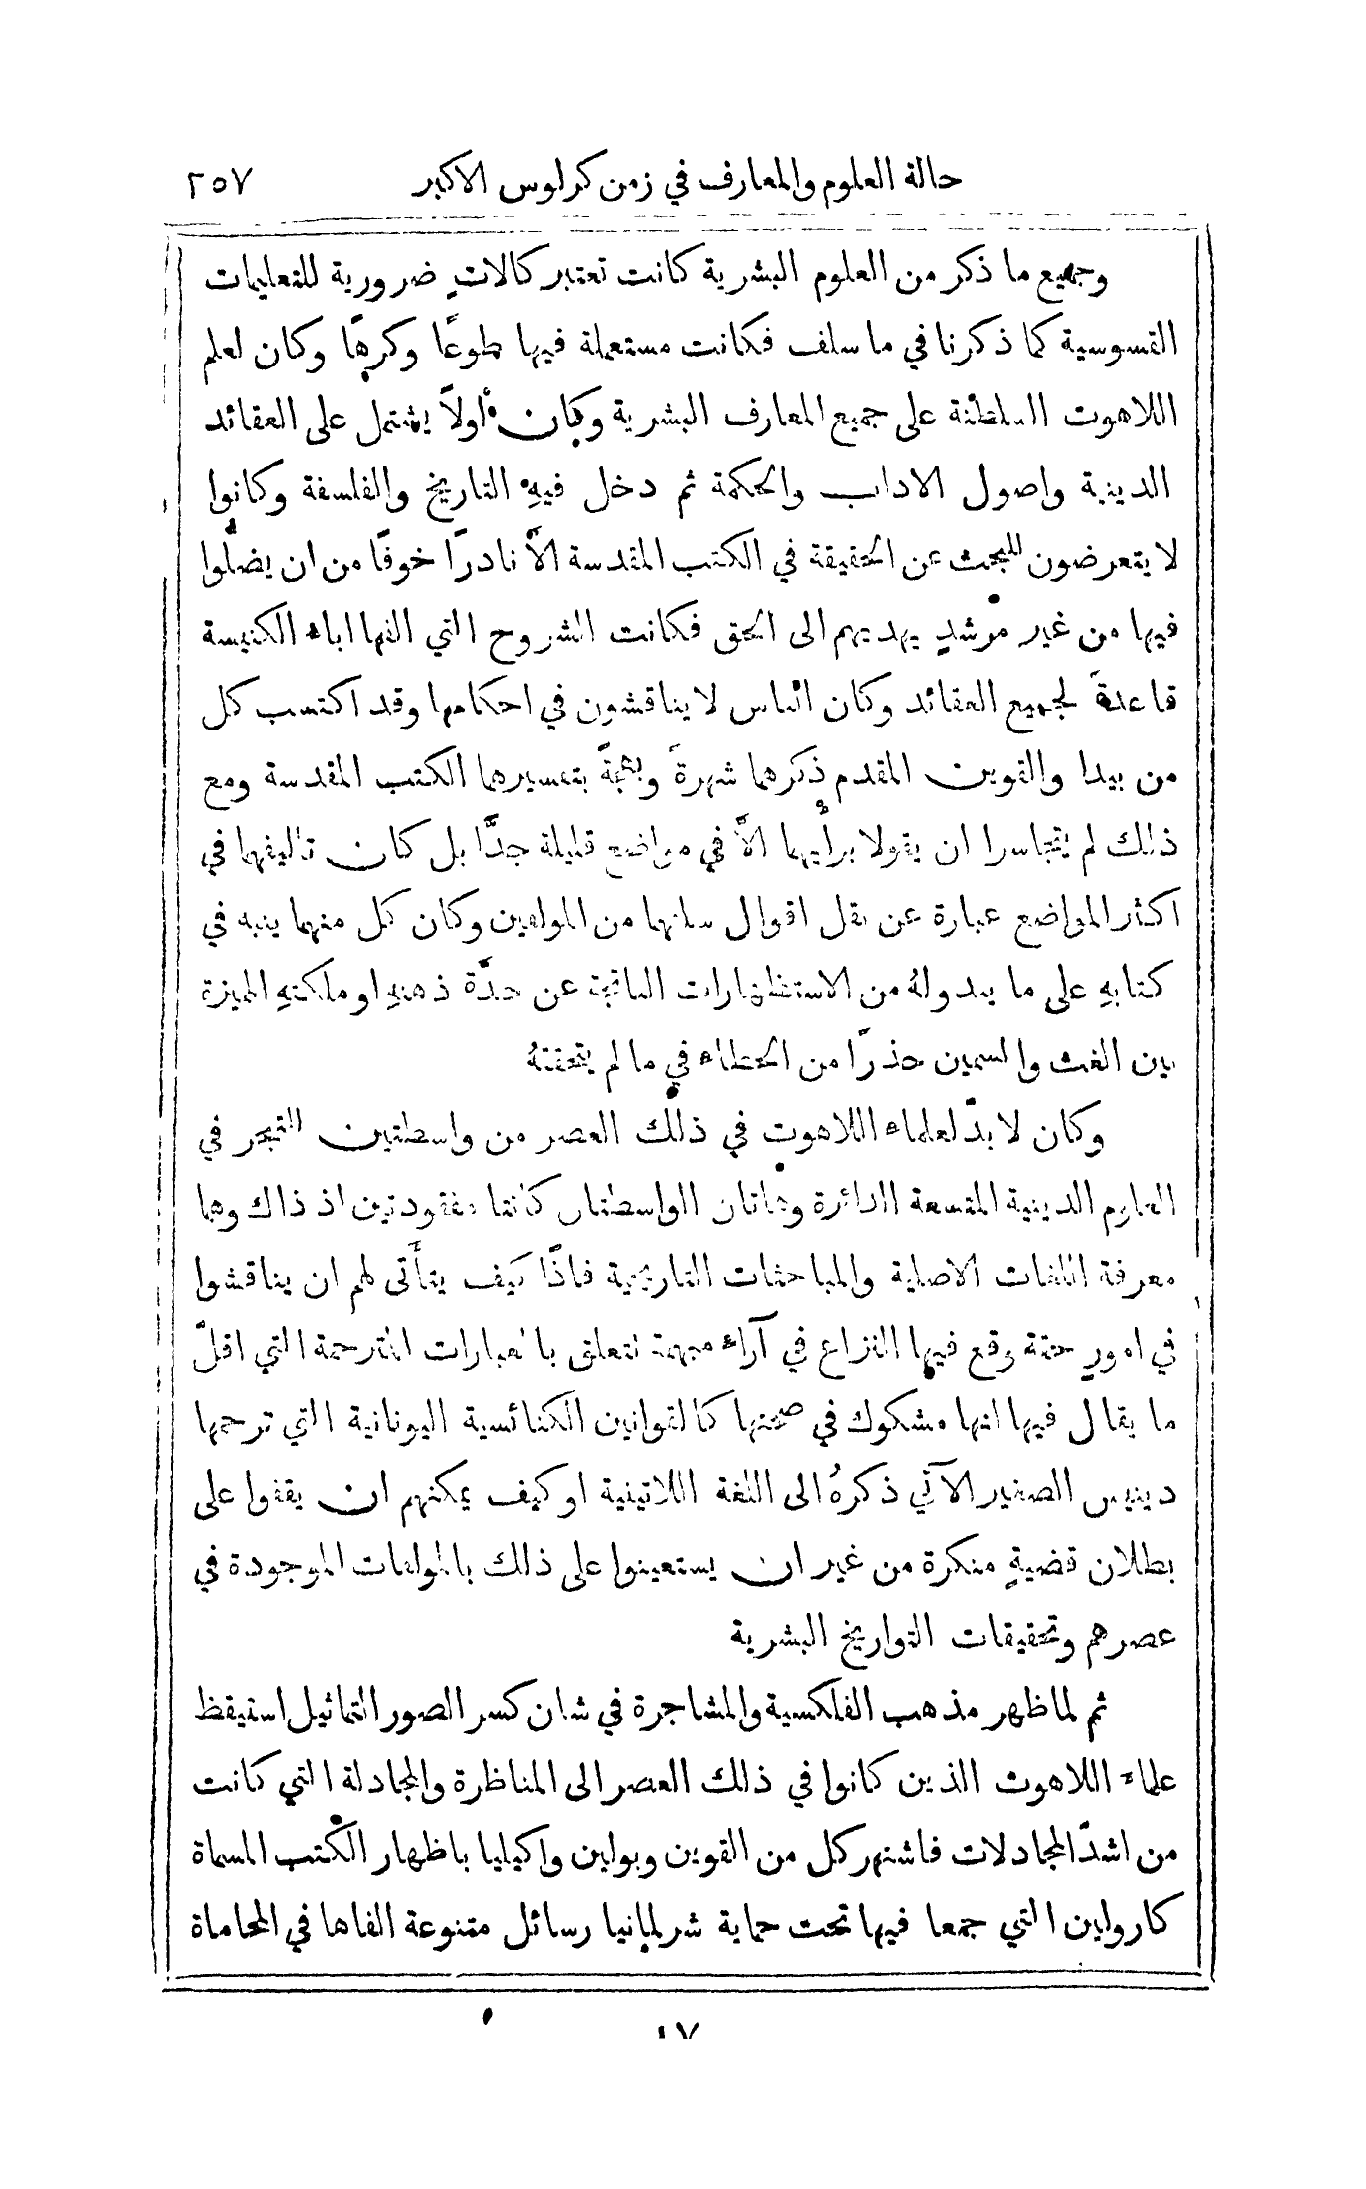 حالة العلوم والمعارف في زمن كرلوس الاكبر ٢٥٧
وجميع ما ذكر من العلوم البشرية كانت تعتبر كالاتٍ ضرورية للتعليمات
القسوسية كما ذكرنا في ما سلف فكانت مستعملة فيها طوعًا وكرهًا وكان لعلم
اللاهوت السلطنة على جميع المعارف البشرية وكان أولاً يشتمل على العقائد
الدينية واصول الاداب والحكمة ثم دخل فيهِ التاريخ والفلسفة وكانوا
لا يتعرضون للبحث عن الحقيقة في الكتب المقدسة الاّ نادرًا خوفًا من ان يضلّوا
فيها من غير مرشدٍ يهديهم الى الحق فكانت الشروح التي الفها اباء الكنيسة
قاعدةً لجميع العقائد وكان الناس لا يناقشون في احكامها وقد اكتسب كل
من بيدا والقوين المقدم ذكرها شهرةً وبهجةً بتفسيرها الكتب المقدسة ومع
ذلك لم يتجاسرا ان يقولا برأيهما الاّ في مواضع قليلة جدًّا بل كان تاليفها في
اكثر المواضع عبارة عن نقل اقوال سلفها من المولفين وكان كل منهما ينبه في
كتابهِ على ما يبدو لهُ من الاستظهارات الناتجة عن حدَّة ذهنهِ او ملكتهِ المميزة
بين الغث والسمين حذرًا من الخطاء في ما لم يتحققهُ
وكان لا بدَّ لعلماء اللاهوت في ذلك العصر من واسطتين للتبحر في
العلوم الدينية المتسعة الدائرة وهاتان الواسطتان كانتا مفقودتين اذ ذاك وهما
معرفة اللغات الاصلية والمباحثات التاريخية فاذًا كيف يتأتى لهم ان يناقشوا
في امورٍ حقة وقع فيها النزاع في آراء مبهمة تتعلق بالعبارات المترجمة التي اقلّ
ما يقال فيها انها مشكوك في صحتها كالقوانين الكنائسية اليونانية التي ترجمها
دينيس الصغير الآتي ذكرهُ الى اللغة اللاتينية او كيف يمكنهم ان يقفوا على
بطلان قضيةٍ منكرة من غير ان يستعينوا على ذلك بالمولفات الموجودة في
عصرهم وتحقيقات التواريخ البشرية
ثم لما ظهر مذهب الفلكسية والمشاجرة في شان كسر الصور التماثيل استيقظ
علماء اللاهوت الذين كانوا في ذلك العصر الى المناظرة والمجادلة التي كانت
من اشدّ المجادلات فاشتهر كل من القوين وبولين واكيليا باظهار الكتب المسماة
كارولين التي جمعا فيها تحت حماية شرلمانيا رسائل متنوعة الفاها في المحاماة
١٧